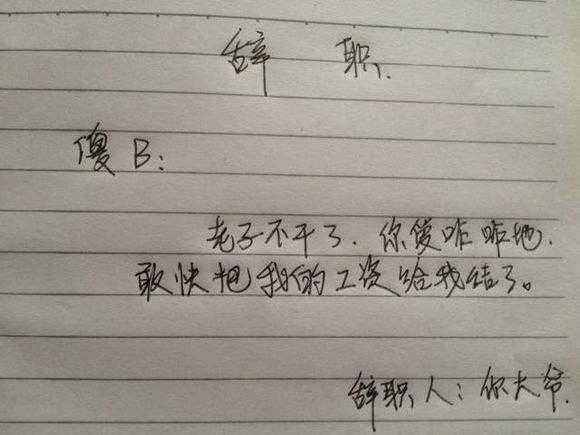 辞 职
傻B:
老子不干了. 你傻咋咋地.
敢快把我的工资给我结了。
辞职人:你大爷.